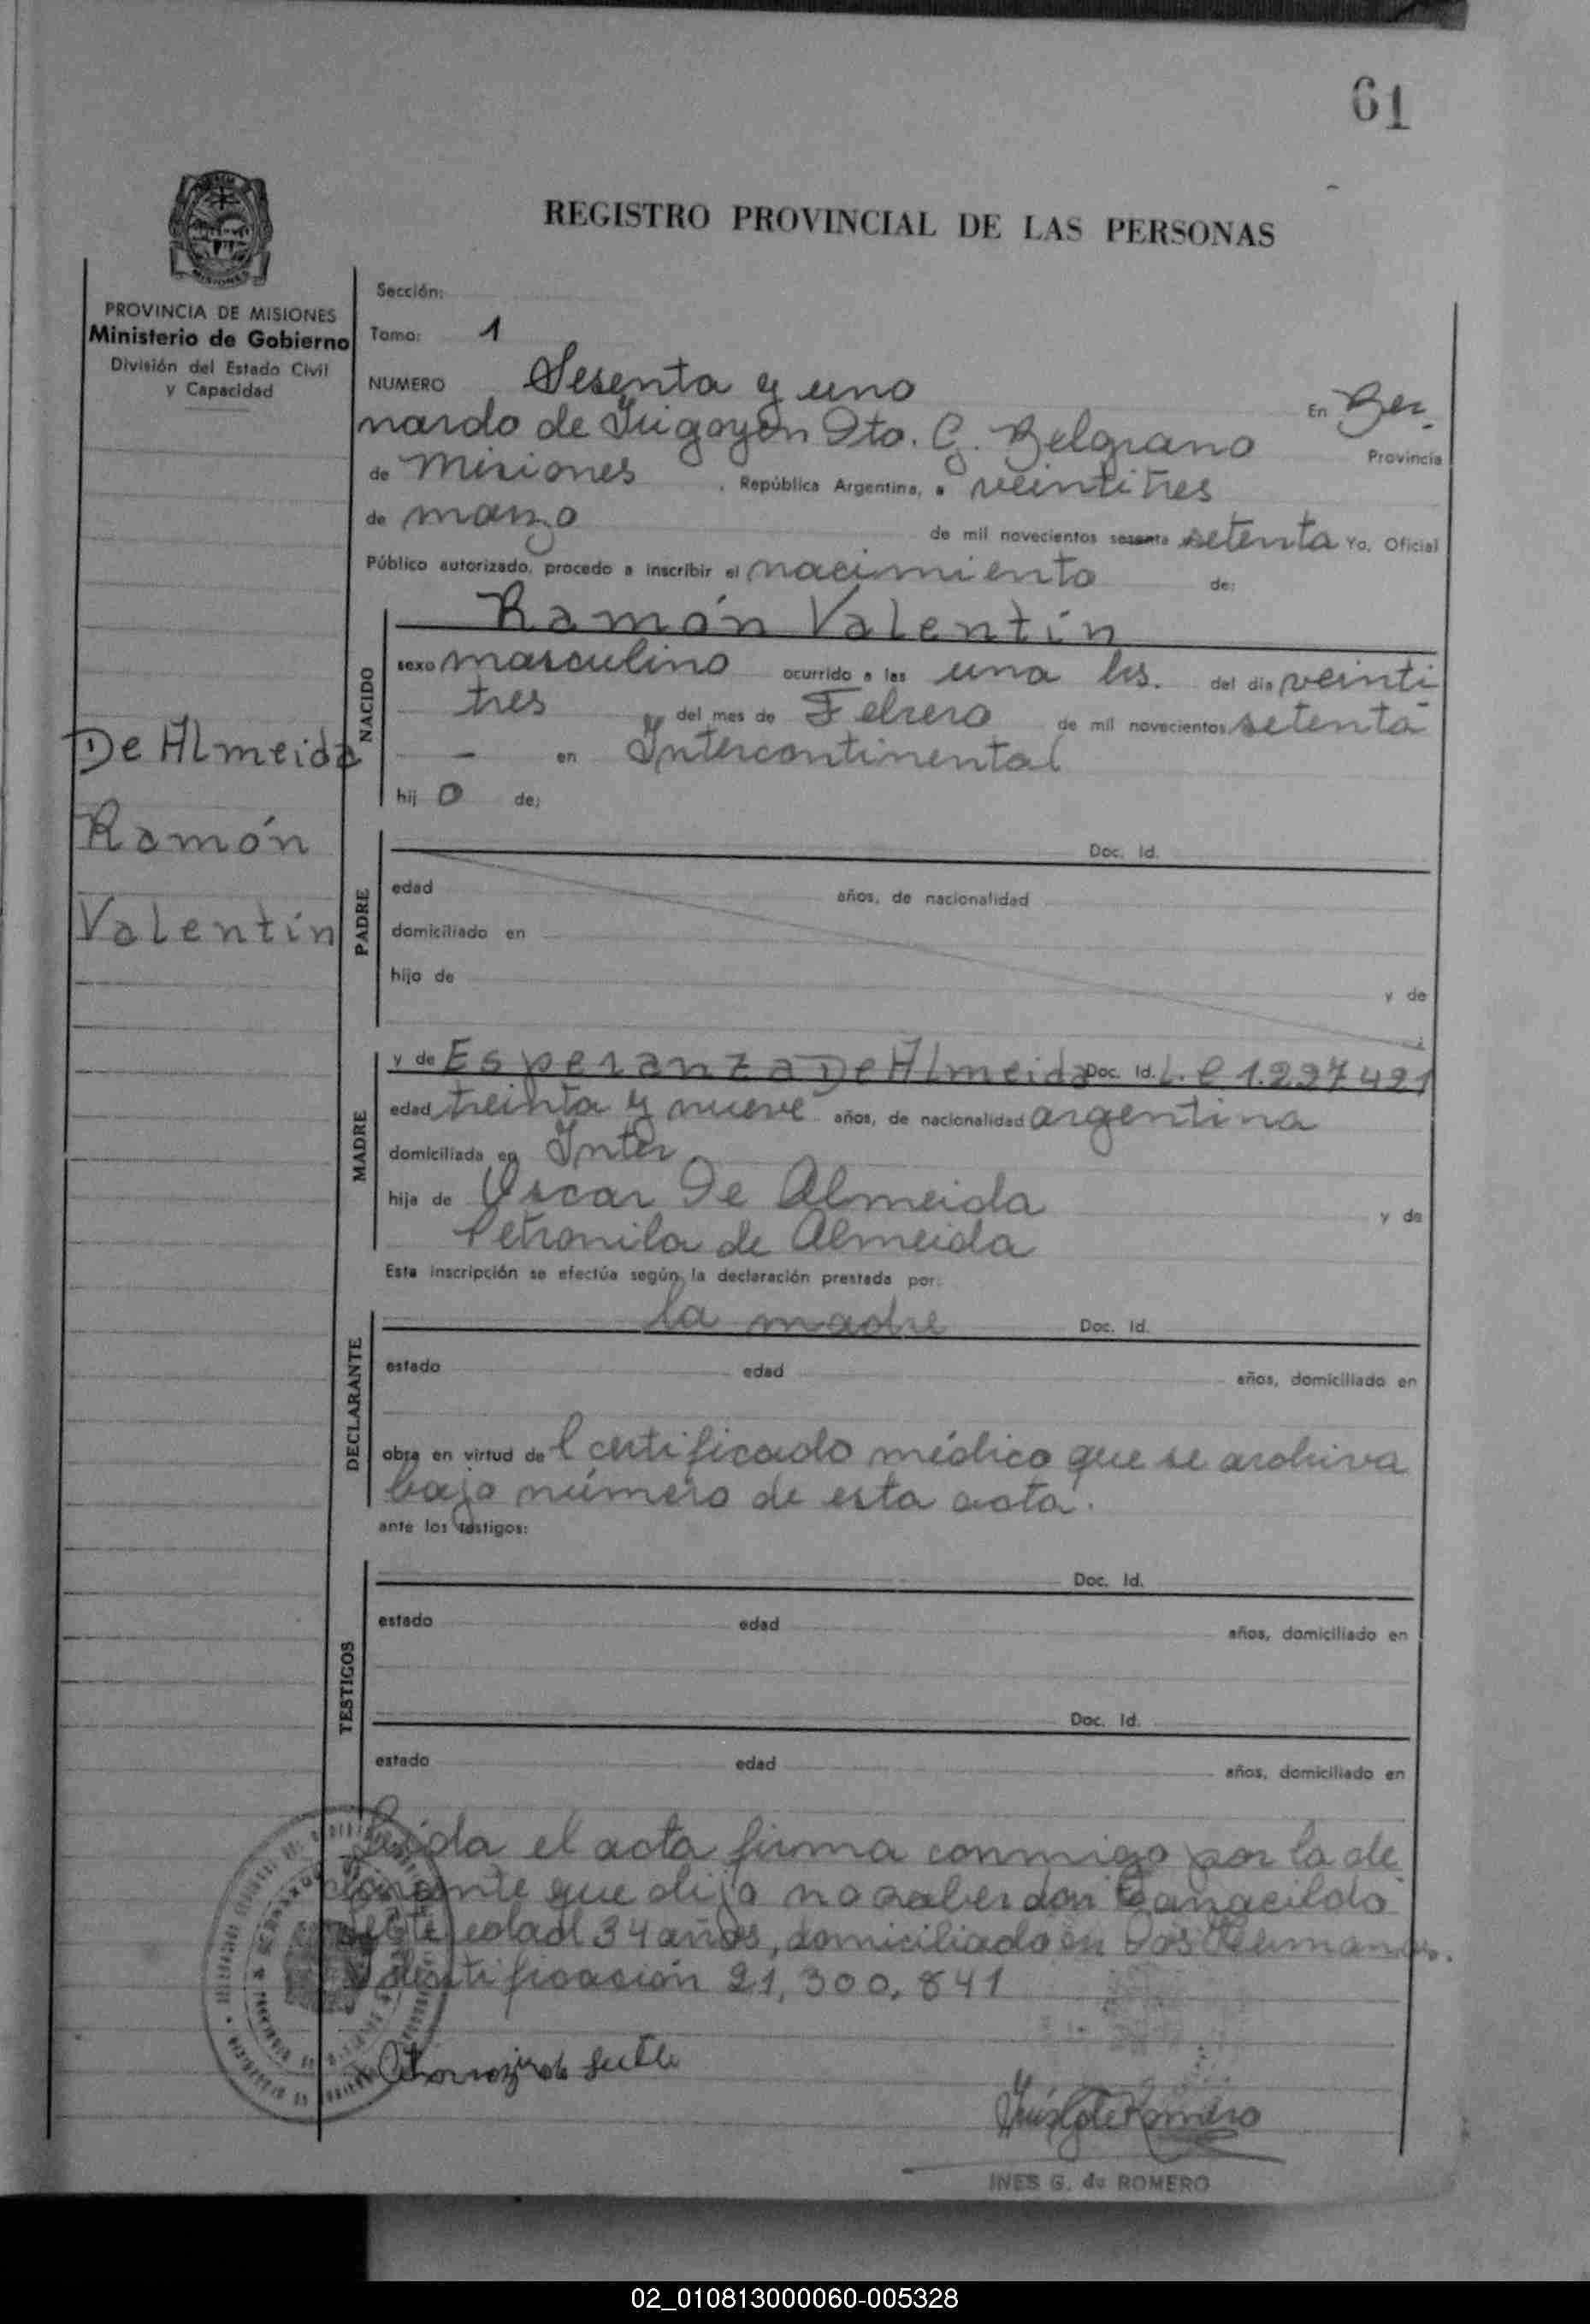 61
REGISTRO PROVINCIAL DE LAS PERSONAS
MISIONES
PROVINCIA DE MISIONES
Ministerio de Gobierno
División del Estado Civil
y Capacidad
De Almeida
Ramón
Valentín
Sección:
Tomo: 1
NUMERO Sesenta y uno En Ber.
nardo de Irigoyen Dto. G. Belgrano Provincia
de Misiones , República Argentina, a veintitres
de marzo de mil novecientos sesenta setenta Yo, Oficial
Público autorizado, procedo a inscribir el nacimiento de:
NACIDO
Ramón Valentín
sexo masculino ocurrido a las una hs. del día veinti
tres del mes de Febrero de mil novecientos setenta
— en Intercontinental
hij o de:
PADRE
Doc. Id.
edad años, de nacionalidad
domiciliado en
hijo de y de
MADRE
y de Esperanza De Almeida Doc. Id. L.C 1.297421
edad treinta y nueve años, de nacionalidad argentina
domiciliada en Inter
hija de Oscar De Almeida y de
Petronila de Almeida
Esta inscripción se efectúa según la declaración prestada por:
DECLARANTE
la madre Doc. Id.
estado edad años, domiciliado en
obra en virtud de l certificado médico que se archiva
bajo número de esta acta.
ante los testigos:
TESTIGOS
Doc. Id.
estado edad años, domiciliado en
Doc. Id.
estado edad años, domiciliado en
Leida el acta firma conmigo por la de
clarante que dijo no saber don
edad 34 años, domiciliado en Dos Hermanas.
Identificación 21,300,841
INES G. de ROMERO
02_010813000060-005328